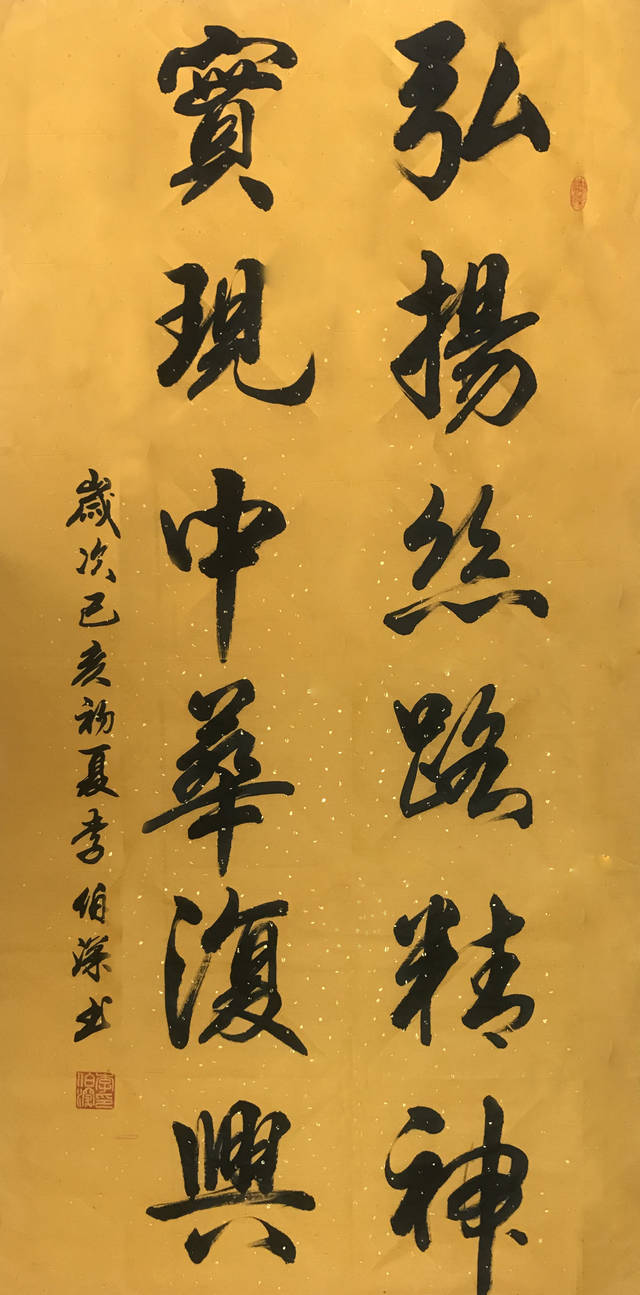 弘揚丝路精神
實現中華復興
歲次己亥初夏李伯深书